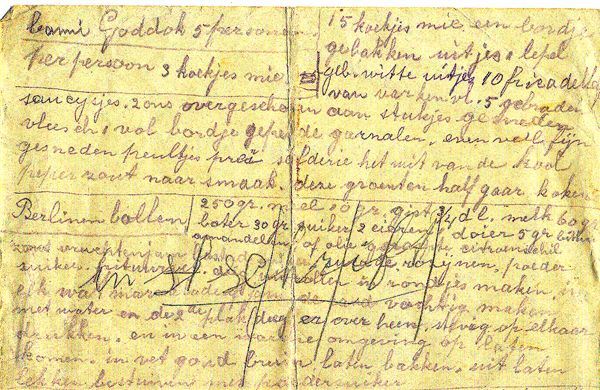 bami Goddok 5 personen.
per persoon 3 koekjes mie
15 koekjes mie een bordje
gebakken uitjes 1 lepel
geb. witte uitjes 10 fricadellen
van varkenvl. 5 gebraden
saucysjes. 2 ons overgeschoten aan stukjes gesneden
vleesch 1 vol bordje gepelde garnalen, even veel fijn
gesneden peultjes prei selderie het wit van de kool
peper zout naar smaak. deze groenten half gaar koken
Berlinen bollen
250 gr. meel 10 gr. gist 3/4 dl. melk 60 gr
boter 30 gr. suiker 2 eieren 1 dooier 5 gr
amandelen of olie geraspte citroenschil
zout vruchtenjam rozijnen, poeder
suiker. de uitrollen in rondjes maken, in
elk wat marmelade de rand vochtig maken
met water en de 2de plak deeg er over heen, stevig op elkaar
drukken, en in een warme omgeving op laten
komen, in vet goud bruin laten bakken, uit laten
lekken bestuiven met poedersuiker